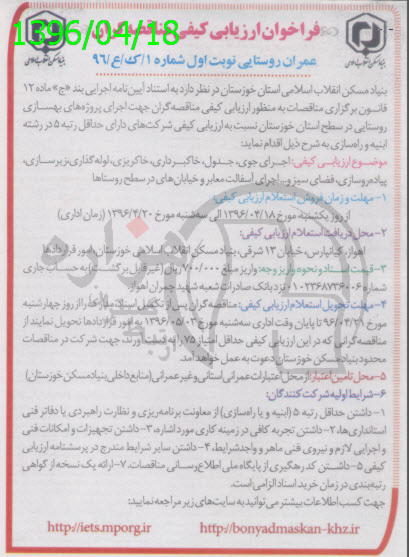 1396/04/18
فراخوان ارزیابی کیفی مناقصه گران
عمران روستایی نوبت اول شماره ۱/ک/ع/۹۶
بنیاد مسکن انقلاب اسلامی استان خوزستان در نظر دارد به استناد آیین نامه اجرایی بند «ج» ماده ۱۲
قانون برگزاری مناقصات به منظور ارزیابی کیفی مناقصه گران جهت اجرای پروژه های بهسازی
روستایی در سطح استان خوزستان نسبت به ارزیابی کیفی شرکت های دارای حداقل رتبه ۵ در رشته
ابنیه و راهسازی به شرح ذیل اقدام نماید:
موضوع ارزیابی کیفی: اجرای جوی، جدول، خاکبرداری، خاکریزی، لوله گذاری، زیرسازی،
پیاده روسازی، فضای سبز و... اجرای آسفالت معابر و خیابان های در سطح روستاها
۱- مهلت و زمان فروش استعلام ارزیابی کیفی:
از روز یکشنبه مورخ ۱۳۹۶/۰۴/۱۸ الی سه شنبه مورخ ۱۳۹۶/۴/۲۰ (زمان اداری)
۲- محل دریافت استعلام ارزیابی کیفی:
اهواز، کیانپارس، خیابان ۱۳ شرقی، بنیاد مسکن انقلاب اسلامی خوزستان، امور قراردادها
۳- قیمت اسناد و نحوه واریز وجه: واریز مبلغ ۷۰۰/۰۰۰ ریال (غیر قابل برگشت) به حساب جاری
شماره ۱۰۲۳۶۸۷۳۶۰۰۶ نزد بانک صادرات شعبه شهید چمران اهواز
۴- مهلت تحویل استعلام ارزیابی کیفی: مناقصه گران پس از تکمیل اسناد، مدارک را از روز چهارشنبه
مورخ ۹۶/۰۴/۲۱ تا پایان وقت اداری سه شنبه مورخ ۱۳۹۶/۰۵/۰۳ به امور قراردادها تحویل نمایند از
مناقصه گرانی که در این ارزیابی کیفی حداقل امتیاز ۷۵ را به دست آورند، جهت شرکت در مناقصات
محدود بنیاد مسکن خوزستان دعوت به عمل خواهد آمد.
۵- محل تامین اعتبار: از محل اعتبارات عمرانی استانی و غیر عمرانی (منابع داخلی بنیاد مسکن خوزستان)
۶- شرایط اولیه شرکت کنندگان:
۱- داشتن حداقل رتبه ۵ (ابنیه و یا راهسازی) از معاونت برنامه ریزی و نظارت راهبردی یا دفاتر فنی
استانداری ها، ۲- داشتن تجربه کافی در زمینه کاری مورد اشاره، ۳- داشتن تجهیزات و امکانات فنی
و اجرایی لازم و نیروی فنی ماهر و واجد شرایط، ۴- داشتن سایر شرایط مندرج در پرسشنامه ارزیابی
کیفی ۵- داشتن کد رهگیری از پایگاه ملی اطلاع رسانی مناقصات. ۷- ارائه یک نسخه از گواهی
رتبه بندی در زمان خرید اسناد الزامی است.
جهت کسب اطلاعات بیشتر می توانید به سایت های زیر مراجعه نمایید:
http://iets.mporg.ir http://bonyadmaskan-khz.ir